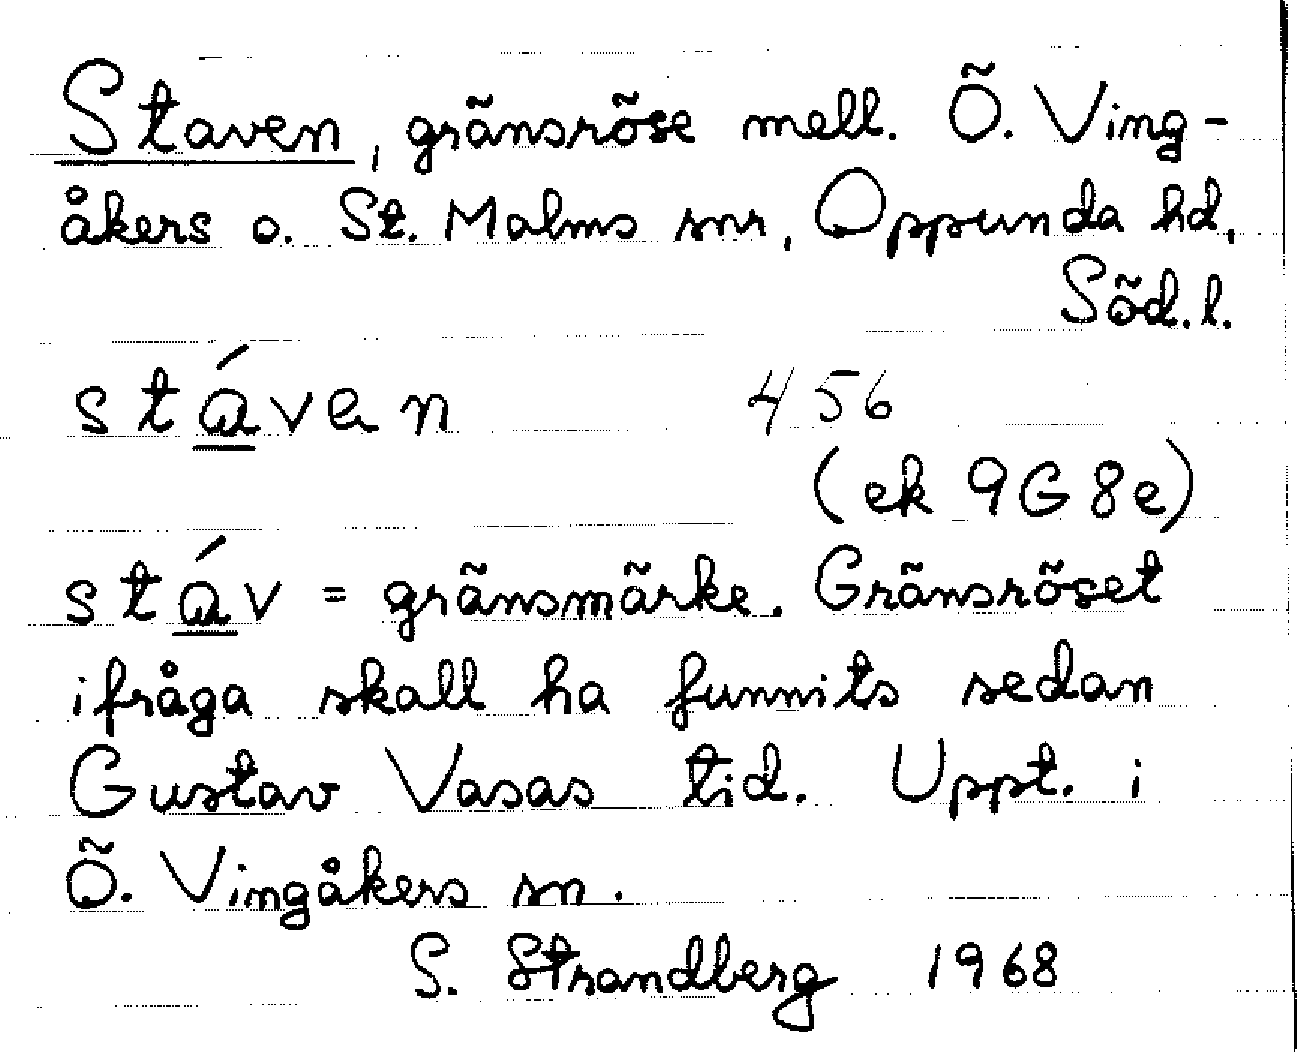 Staven, gränsröse mell. Ö. Ving-
åkers o. St. Malms snr, Oppunda hd,
Söd.l.
stáven 456
(ek 9G8e)
stáv = gränsmärke. Gränsröset
ifråga skall ha funnits sedan
Gustav Vasas tid. Uppt. i
Ö. Vingåkers sn.
S. Strandberg 1968